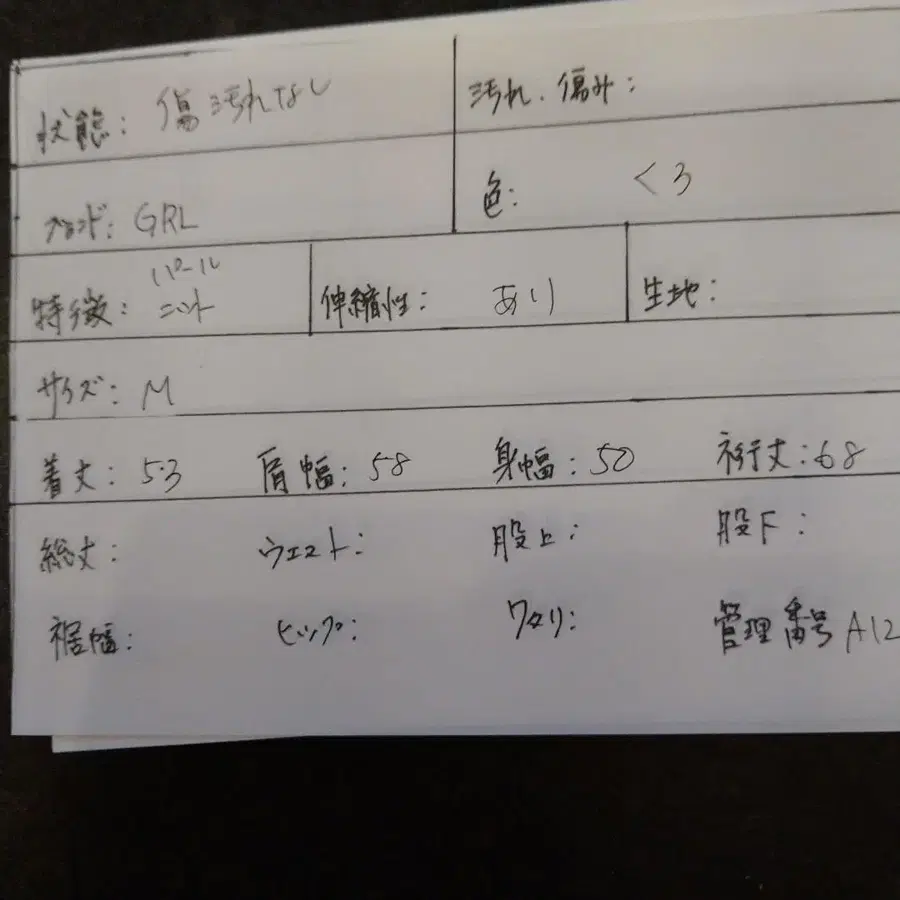 状態: 傷汚れなし 汚れ、傷み:
ブランド: GRL 色: くろ
特徴: パール ニット 伸縮性: あり 生地:
サイズ: M
着丈: 53 肩幅: 58 身幅: 50 裄丈: 68
総丈: ウエスト: 股上: 股下:
裾幅: ヒップ: ワタリ: 管理番号 A12